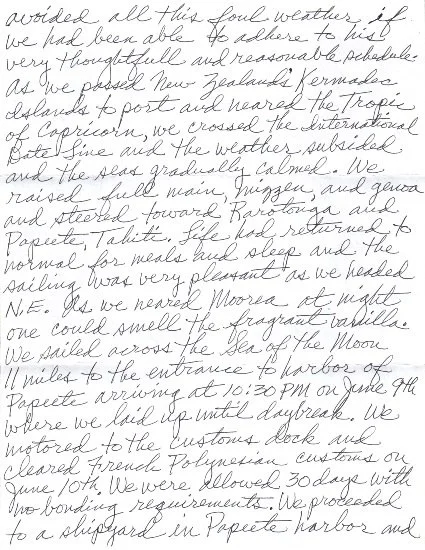 avoided all this foul weather if
we had been able to adhere to his
very thoughtfull and reasonable schedule.
As we passed New Zealand's Kermadec
Islands to port and neared the Tropic
of Capricorn, we crossed the International
Date Line and the weather subsided
and the seas gradually calmed. We
raised full main, mizzen, and genoa
and steered toward Rarotonga and
Papeete, Tahiti. Life had returned to
normal for meals and sleep and the
sailing was very pleasant as we headed
N.E. As we neared Moorea at night
one could smell the fragrant vanilla.
We sailed across the Sea of the Moon
11 miles to the entrance to harbor of
Papeete arriving at 10:30 PM on June 9th
where we laid up until daybreak. We
motored to the customs dock and
cleared French Polynesian customs on
June 10th. We were allowed 30 days with
no bonding requirements. We proceeded
to a shipyard in Papeete harbor and